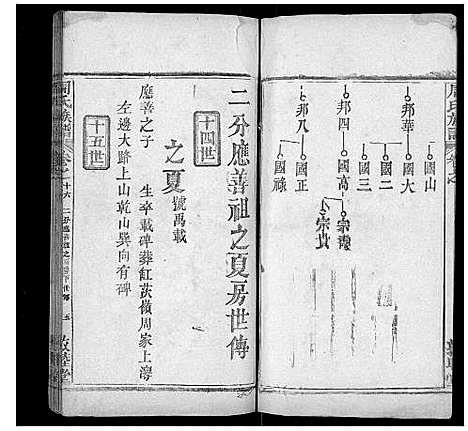 周氏族譜
國山
邦華
國大
國二
國三
邦四
國高
宗譏
宗貴
邦八
國祿
二分應善祖之夏房世傳
十四世
之夏 號禹載
應善之子 生卒載碑葬紅茨嶺周家上灣
左邊大路上山乾山巽向有碑
十五世
周氏族譜
卷之十六
二分應善祖之
五
敦華堂